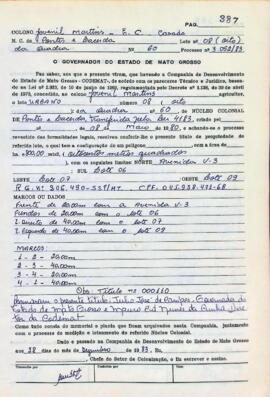 PAG. 387
COLONO Juvenil Martins - E. C. Casado
N. C. de Pontes e Lacerda Lote nº 08 (oito)
da Quadra Nº 60 Processo nº 3.052/83
O GOVERNADOR DO ESTADO DE MATO GROSSO
Faz saber, aos que a presente virem, que havendo a Companhia de Desenvolvimento
do Estado de Mato Grosso - CODEMAT, de acordo com os pareceres Técnico e Jurídico, basea-
dos na Lei nº 2.033, de 10 de junho de regulamentada pelo Decreto nº 1.138, de de
abril de 1970, concedido, ao colono Juvenil Martins
o lote URBANO número 08 (oito)
da Quadra nº 60 NÚCLEO COLONIAL
de Pontes e Lacerda, transferida pela Lei 4183
08 de Março de 1980, e achando-se o processo
revestido das formalidades legais, resolveu confirmar-lhe o título de propriedade
referido lote, o qual tem a configuração de um polígono com a área de
800,00 m2 (oitocentos metros quadrados)
com os seguintes limites NORTE Avenida V-3
SUL Lote 06
LESTE Lote 07 OESTE Lote 09
R.G. nº 306.490-SSP/MT. CPF. 045.938.471-68
MARCOS OU DADOS
Frente de 20,00m com a Avenida V-3
Fundos de 20,00m com o lote 06
L. Direito de 40,00m com o lote 07
L. Esquerdo de 40,00m com o lote 09
MARCOS:
1 - 2 - 20,00m
2 - 3 - 40,00m
3 - 4 - 20,00m
4 - 1 - 40,00m
Obs. Título nº 000110
Assinaram o presente título: Julio José de Campos, Governador do
Estado de Mato Grosso e Mauro Cid Nunes da Cunha, Dire
tor da Codemat
Como tudo consta do memorial e planta que foram arquivados nesta Companhia, juntamente
com o processo de medição e loteamento do referido Núcleo Colonial.
Dado e passado na Companhia de Desenvolvimento do Estado de Mato Grosso
aos 28 dias do mês de Dezembro de 1983. Eu,
Chefe do Setor de Colonização, O fiz escrever e assino.